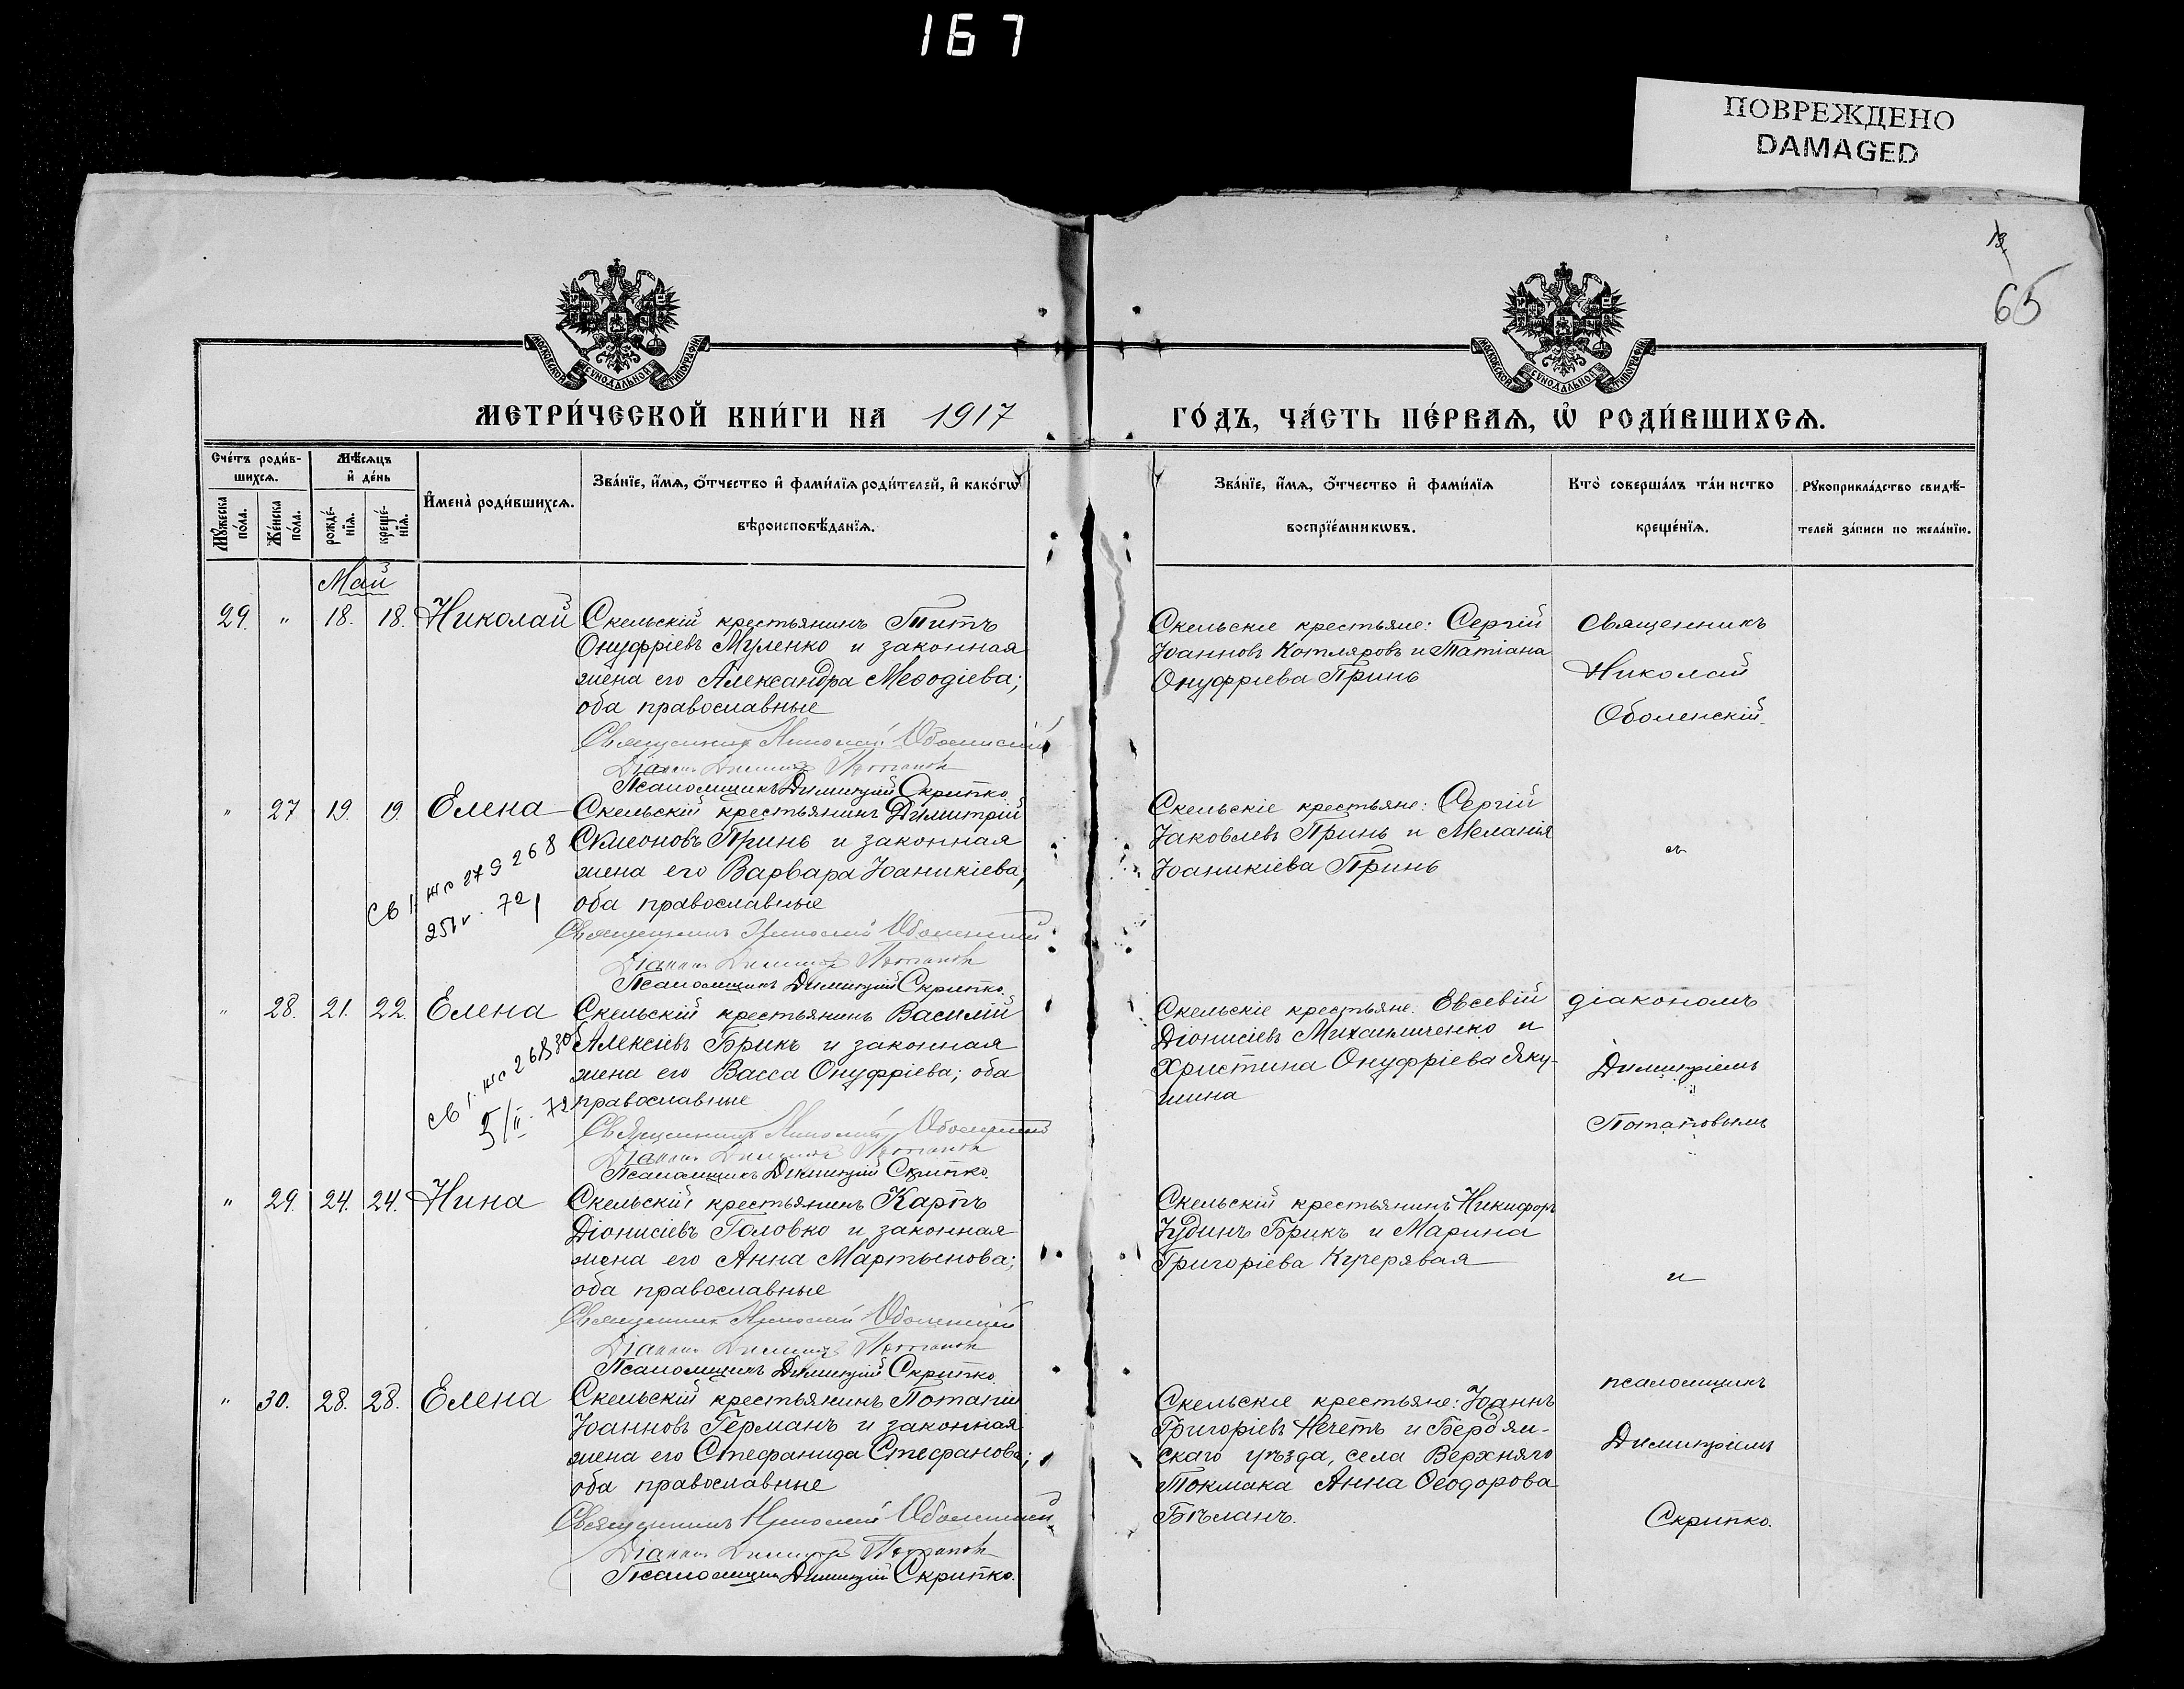 167
ПОВРЕЖДЕНО
DAMAGED
65
МОСКОВСКОЙ СУНОДАЛЬНОЙ ТИПОГРАФIИ
МОСКОВСКОЙ СУНОДАЛЬНОЙ ТИПОГРАФIИ
МЕТРИ́ЧЕСКОЙ КНИ́ГИ НА 1917
ГО́ДЪ, ЧА́СТЬ ПЕ́РВАѦ, Ѡ҆ РОДИ́ВШИХСѦ.
Сче́тъ роди́в-
шихсѧ.
Мꙋ́жеска по́ла.
Же́нска по́ла.
Мѣ́сѧцъ
и҆ де́нь
рожде́-
нїѧ.
креще́-
нїѧ.
И҆мена̀ роди́вшихсѧ.
Зва́нїе, и҆́мѧ, ѻ҆́тчество и҆ фами́лїѧ роди́телей, и҆ како́гѡ
вѣроисповѣ́данїѧ.
Зва́нїе, и҆́мѧ, ѻ҆́тчество и҆ фами́лїѧ
воспрїе́мникѡвъ.
Кто̀ соверша́лъ та́инство
креще́нїѧ.
Рꙋкоприкла́дство свидѣ́-
телей за́писи по жела́нїю.
Май
29. " 18. 18. Николай
Скельскій крестьянинъ Титъ
Онуфріевъ Муленко и законная
жена его Александра Меѳодіева;
оба православные
Священникъ Николай Оболенскій
Діаконъ Димитрій Потаповъ
Псаломщикъ Димитрій Скрипко
Скельскіе крестьяне: Сергій
Іоанновъ Котляровъ и Татіана
Онуфріева Принь
Священникъ
Николай
Оболенскій
" 27 19. 19 Елена
Скельскій крестьянинъ Димитрій
Сѵмеоновъ Принь и законная
жена его Варвара Іоаникіева,
оба православные
Священникъ Николай Оболенскій
Діаконъ Димитрій Потаповъ
Псаломщикъ Димитрій Скрипко.
Скельскіе крестьяне: Сергій
Іаковлевъ Принь и Меланія
Іоаникіева Принь
съ
" 28. 21. 22. Елена
Скельскій крестьянинъ Василій
Алексіевъ Брикъ и законная
жена его Васса Онуфріева; оба
православные
Священникъ Николай Оболенскій
Діаконъ Димитрій Потаповъ
Псаломщикъ Димитрій Скрипко.
Скельскіе крестьяне: Евсевій
Діонисіевъ Михайличенко и
Христина Онуфріева Яку-
шина
діакономъ
Димитріемъ
Потаповымъ
" 29. 24. 24. Нина
Скельскій крестьянинъ Карпъ
Діонисіевъ Головко и законная
жена его Анна Мартынова;
оба православные
Священникъ Николай Оболенскій
Діаконъ Димитрій Потаповъ
Псаломщикъ Димитрій Скрипко.
Скельскій крестьянинъ Никифоръ
Іудинъ Брикъ и Марина
Григоріева Кучерявая
и
" 30. 28. 28. Елена
Скельскій крестьянинъ Потапій
Іоанновъ Германъ и законная
жена его Стефанида Стефанова;
оба православные
Священникъ Николай Оболенскій
Діаконъ Димитрій Потаповъ
Псаломщикъ Димитрій Скрипко.
Скельскіе крестьяне: Іоаннъ
Григоріевъ Нечетъ и Бердян-
скаго уѣзда, села Верхняго
Токмака Анна Ѳеодорова
Бѣланъ.
псаломщикъ
Димитріемъ
Скрипко.